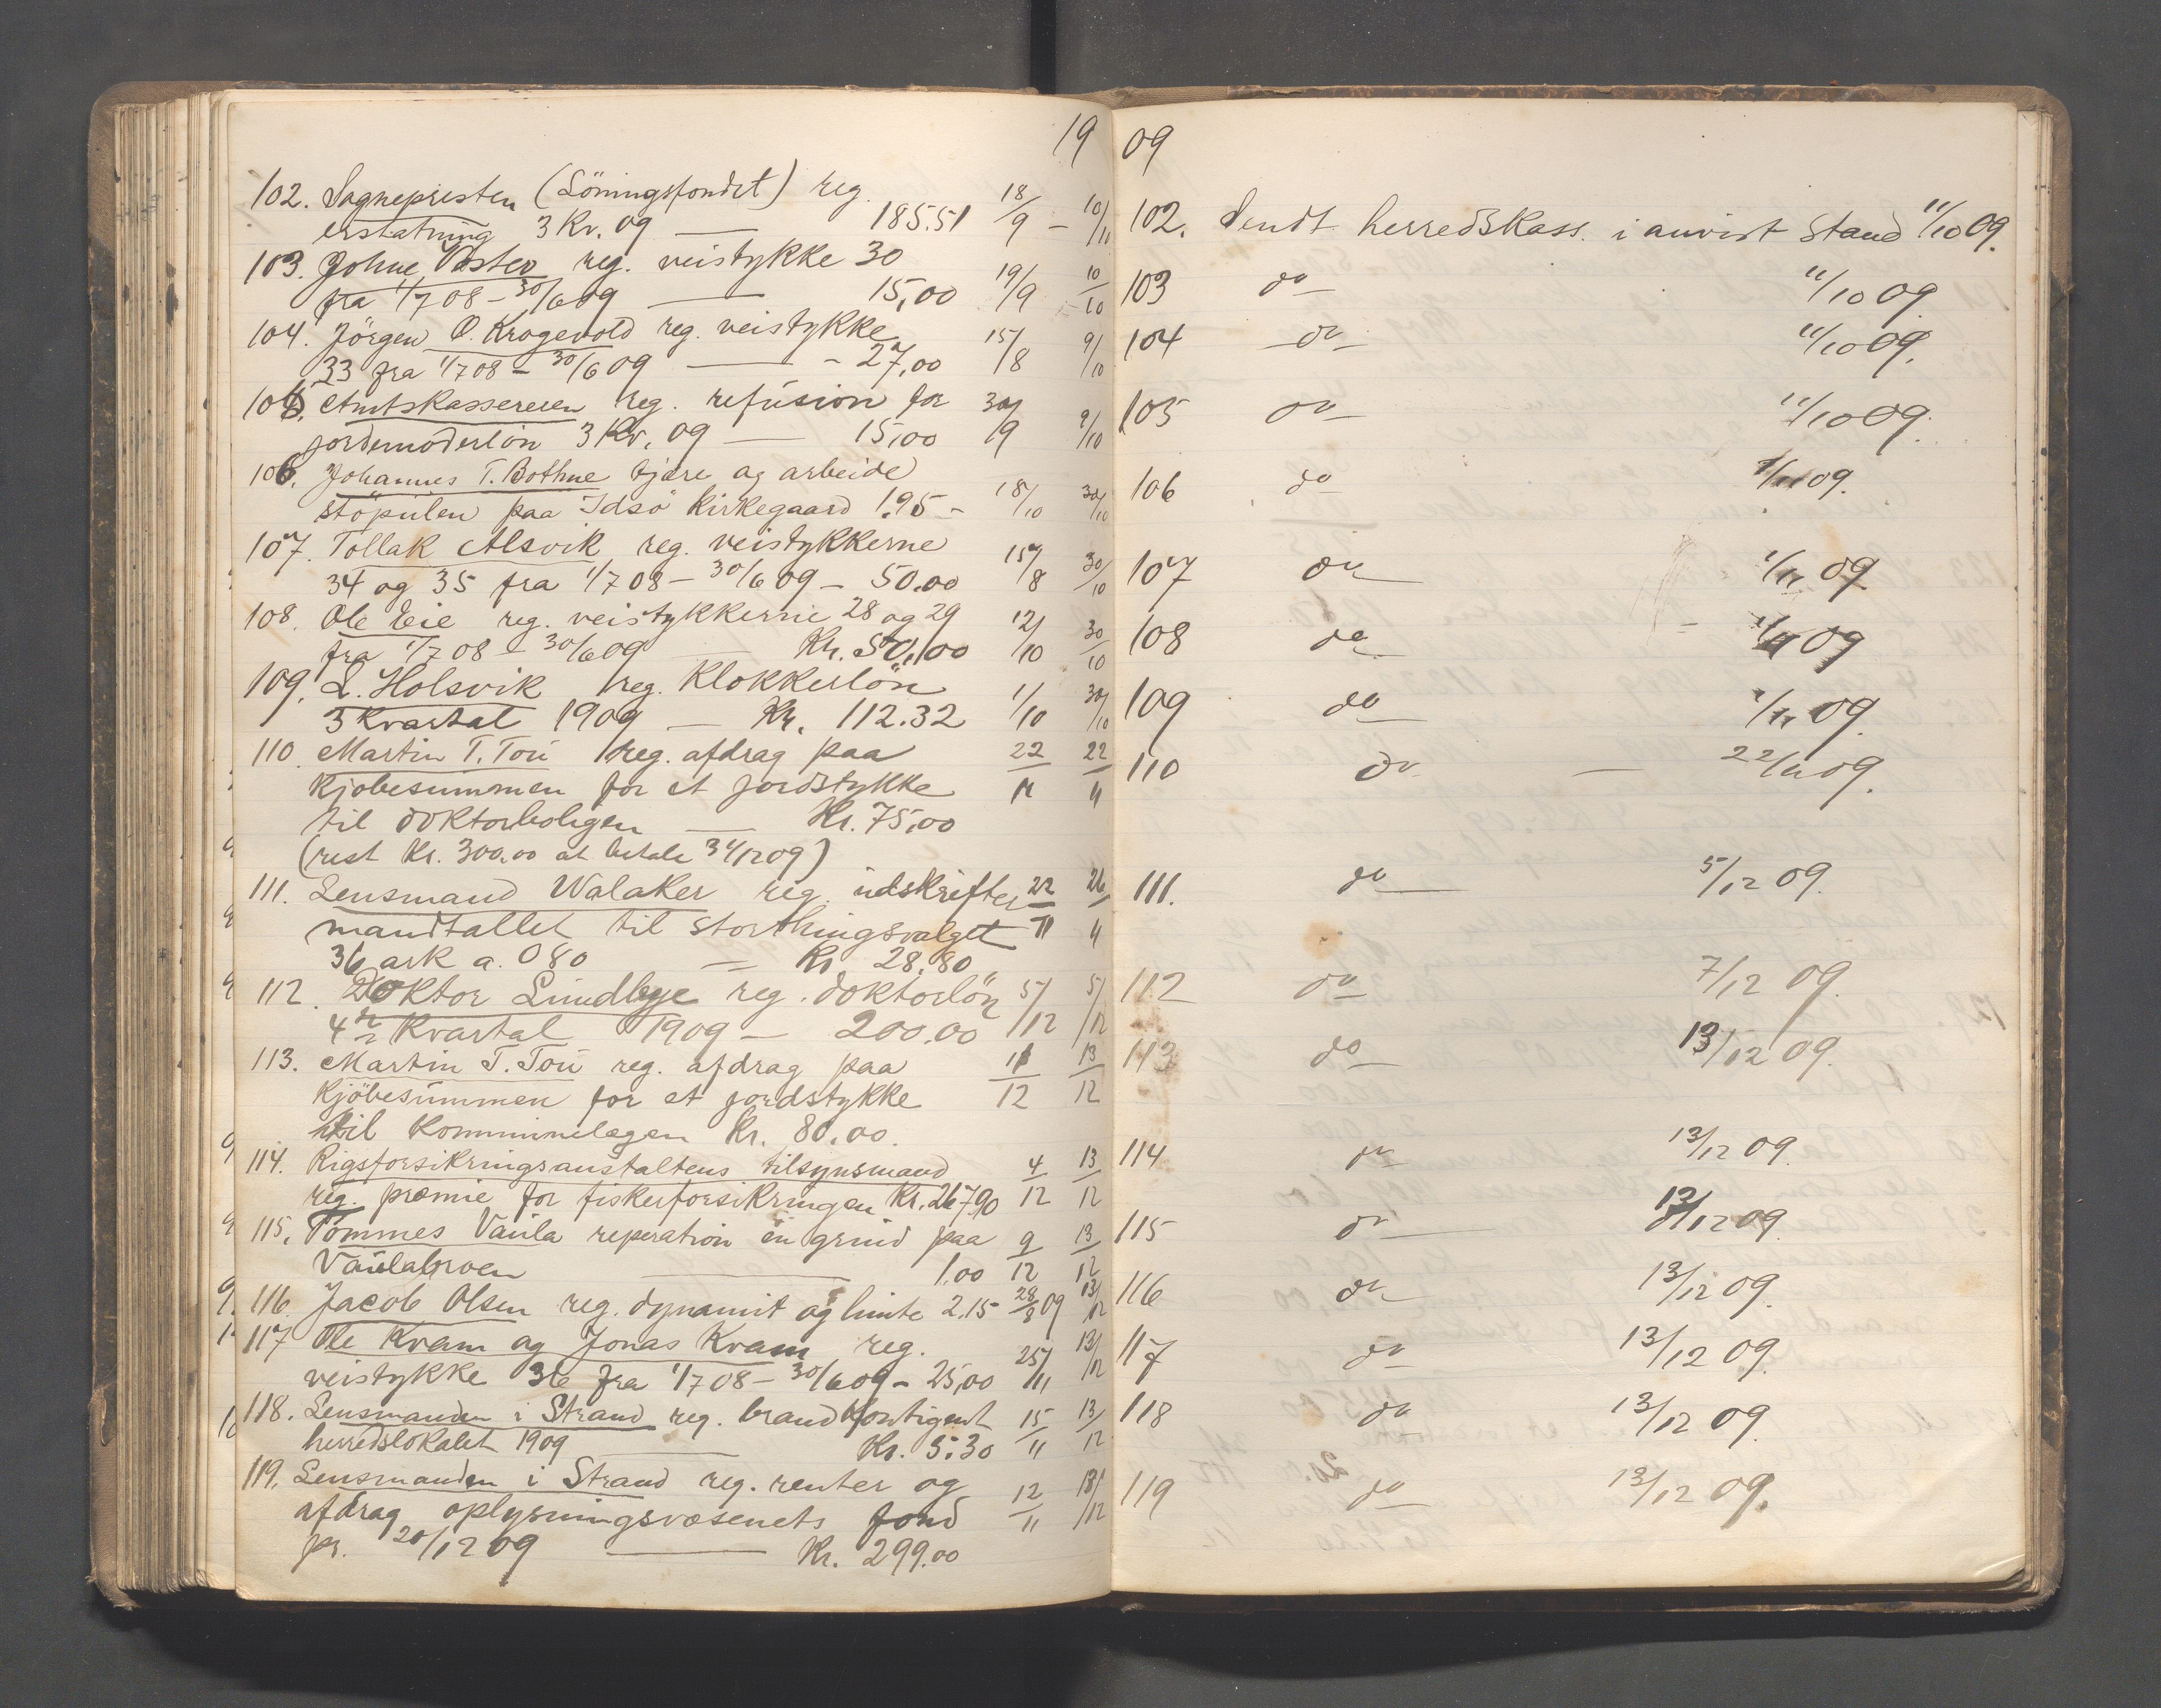 19
102. Sognepresten (Löningsfondet) reg. 18/9 – 10/10
erstatning 3 Kv. 09 — 185.51
103. Johne Vostev reg. veistykke 30
fra 1/7 08 – 30/6 09 — 15,00 19/9 10/10
104. Jörgen O. Krogevold reg. veistykke 15/8 9/10
33 fra 1/7 08 – 30/6 09 — - 27,00
105. Amtskassereren reg. refusion for 30/9 9/10
jordemoderlön 3 Kv. 09 — 15,00
106. Johannes T. Bothne tjære og arbeide
stöpulen paa Idsö Kirkegaard 1.95 – 18/10 30/10
107. Tollak Alsvik reg. veistykkerne 15/8 30/10
34 og 35 fra 1/7 08 – 30/6 09 – 50.00
108. Ole Eie reg. veistykkerne 28 og 29 12/10 30/10
fra 1/7 08 – 30/6 09 — Kr. 50,00
109. L. Holsvik reg. Klokkerlön 1/10 30/10
3 Kvartal 1909 — Kr. 112.32
110. Martin T. Tou reg. afdrag paa 22/11 22/11
Kjöbesummen for et jordstykke
til doktorboligen — Kr. 75,00
(rest Kr. 300.00 at betale 31/12 09)
111. Lensmand Walaker reg. udskrifter 22/11 26/11
mandtallet til storthingsvalget
36 ark a. 080 — Kr 28.80
112. Doktor Lundbye reg. doktorlön 5/12 5/12
4de Kvartal 1909 – 200.00
113. Martin T. Tou reg. afdrag paa 11/12 13/12
Kjöbesummen for et jordstykke
til Kommunelægen Kr. 80.00.
114. Rigsforsikringsanstaltens tilsynsmand 4/12 13/12
reg. præmie for fiskerforsikringen Kr. 267.90
115. Tommes Vaula reperation en grind paa 9/12 13/12
Vaulabroen — 1.00
116. Jacob Olsen reg. dynamit og lunte 2.15 28/8 09 13/12
117 Ole Kvam og Jonas Kvam reg. 25/11 13/12
veistykke 36 fra 1/7 08 – 30/6 09 – 25,00
118. Lensmanden i Strand reg. brandkontigent 15/11 13/12
herredslokalet 1909 — Kr. 5.30
119. Lensmanden i Strand reg. renter og 12/11 13/12
afdrag oplysningsvæsenets fond
pr. 20/12 09 — Kr. 299.00
09
102. Sendt herredskass. i anvist stand 11/10 09.
103 do 11/10 09.
104 do 11/10 09.
105 do 11/10 09.
106 do 1/11 09.
107 do 1/11 09
108 do 1/11 09
109 do 1/11 09.
110 do — 22/11 09.
111. do 5/12 09.
112 do 7/12 09.
113 do 13/12 09.
114 do 13/12 09.
115 do 13/12 09.
116 do 13/12 09.
117 do 13/12 09.
118 do 13/12 09.
119 do 13/12 09.